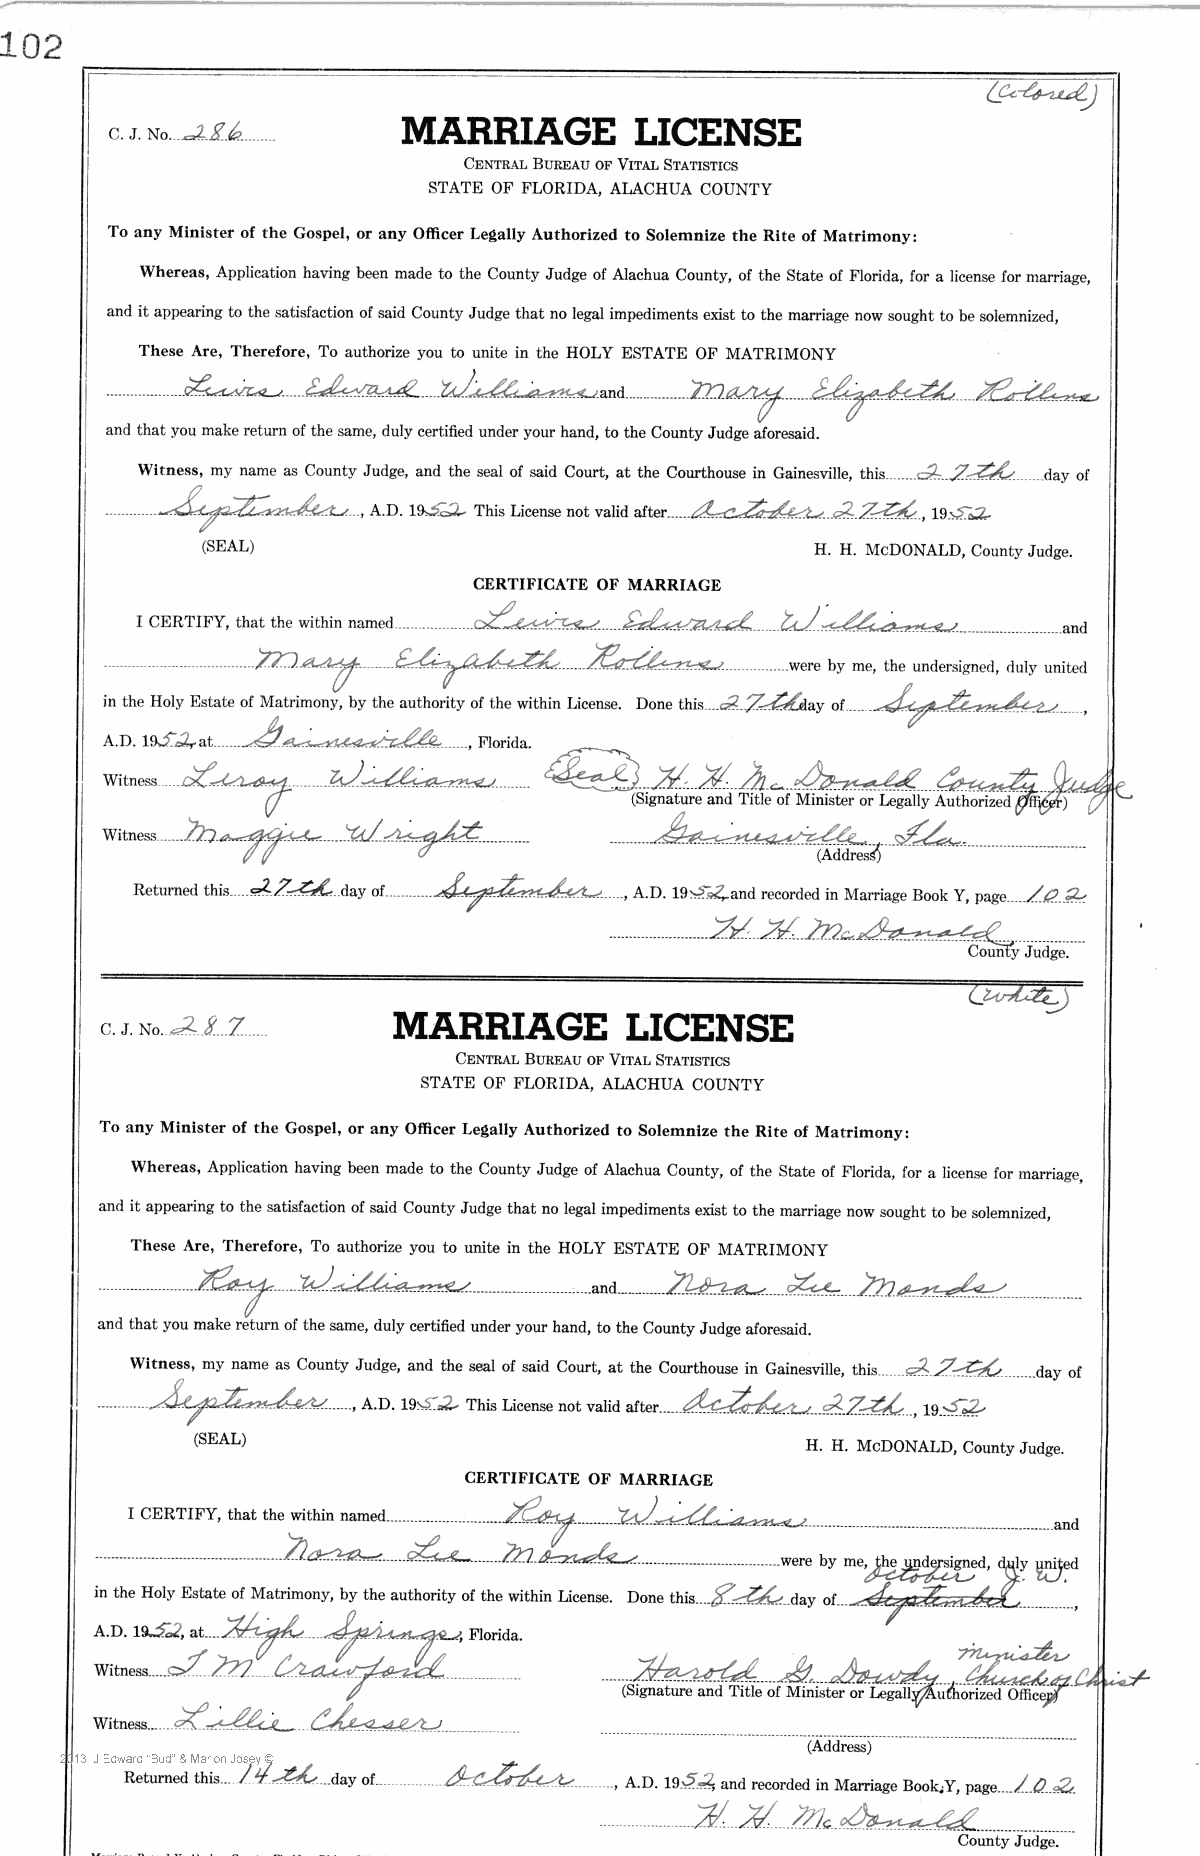 102
(Colored)
C. J. No. 286
MARRIAGE LICENSE
CENTRAL BUREAU OF VITAL STATISTICS
STATE OF FLORIDA, ALACHUA COUNTY
To any Minister of the Gospel, or any Officer Legally Authorized to Solemnize the Rite of Matrimony:
Whereas, Application having been made to the County Judge of Alachua County, of the State of Florida, for a license for marriage,
and it appearing to the satisfaction of said County Judge that no legal impediments exist to the marriage now sought to be solemnized,
These Are, Therefore, To authorize you to unite in the HOLY ESTATE OF MATRIMONY
Lewis Edward Williams and Mary Elizabeth Rollins
and that you make return of the same, duly certified under your hand, to the County Judge aforesaid.
Witness, my name as County Judge, and the seal of said Court, at the Courthouse in Gainesville, this 27th day of
September, A.D. 1952 This License not valid after October 27th, 1952
(SEAL) H. H. McDONALD, County Judge.
CERTIFICATE OF MARRIAGE
I CERTIFY, that the within named Lewis Edward Williams and
Mary Elizabeth Rollins were by me, the undersigned, duly united
in the Holy Estate of Matrimony, by the authority of the within License. Done this 27th day of September,
A.D. 1952, at Gainesville, Florida.
Witness Leroy Williams (Seal) H. H. McDonald County Judge
(Signature and Title of Minister or Legally Authorized Officer)
Witness Maggie Wright Gainesville, Fla.
(Address)
Returned this 27th day of September, A.D. 1952, and recorded in Marriage Book Y, page 102
H. H. McDonald
County Judge.
(White)
C. J. No. 287
MARRIAGE LICENSE
CENTRAL BUREAU OF VITAL STATISTICS
STATE OF FLORIDA, ALACHUA COUNTY
To any Minister of the Gospel, or any Officer Legally Authorized to Solemnize the Rite of Matrimony:
Whereas, Application having been made to the County Judge of Alachua County, of the State of Florida, for a license for marriage,
and it appearing to the satisfaction of said County Judge that no legal impediments exist to the marriage now sought to be solemnized,
These Are, Therefore, To authorize you to unite in the HOLY ESTATE OF MATRIMONY
Roy Williams and Nora Lee Monds
and that you make return of the same, duly certified under your hand, to the County Judge aforesaid.
Witness, my name as County Judge, and the seal of said Court, at the Courthouse in Gainesville, this 27th day of
September, A.D. 1952 This License not valid after October 27th, 1952
(SEAL) H. H. McDONALD, County Judge.
CERTIFICATE OF MARRIAGE
I CERTIFY, that the within named Roy Williams and
Nora Lee Monds were by me, the undersigned, duly united
October J. W.
in the Holy Estate of Matrimony, by the authority of the within License. Done this 8th day of September,
A.D. 1952, at High Springs, Florida.
minister
Witness T M Crawford Harold G Dowdy, Church of Christ
(Signature and Title of Minister or Legally Authorized Officer)
Witness Lillie Chesser
(Address)
2013 J Edward "Bud" & Marion Josey ©
Returned this 14th day of October, A.D. 1952, and recorded in Marriage Book Y, page 102
H. H. McDonald
County Judge.